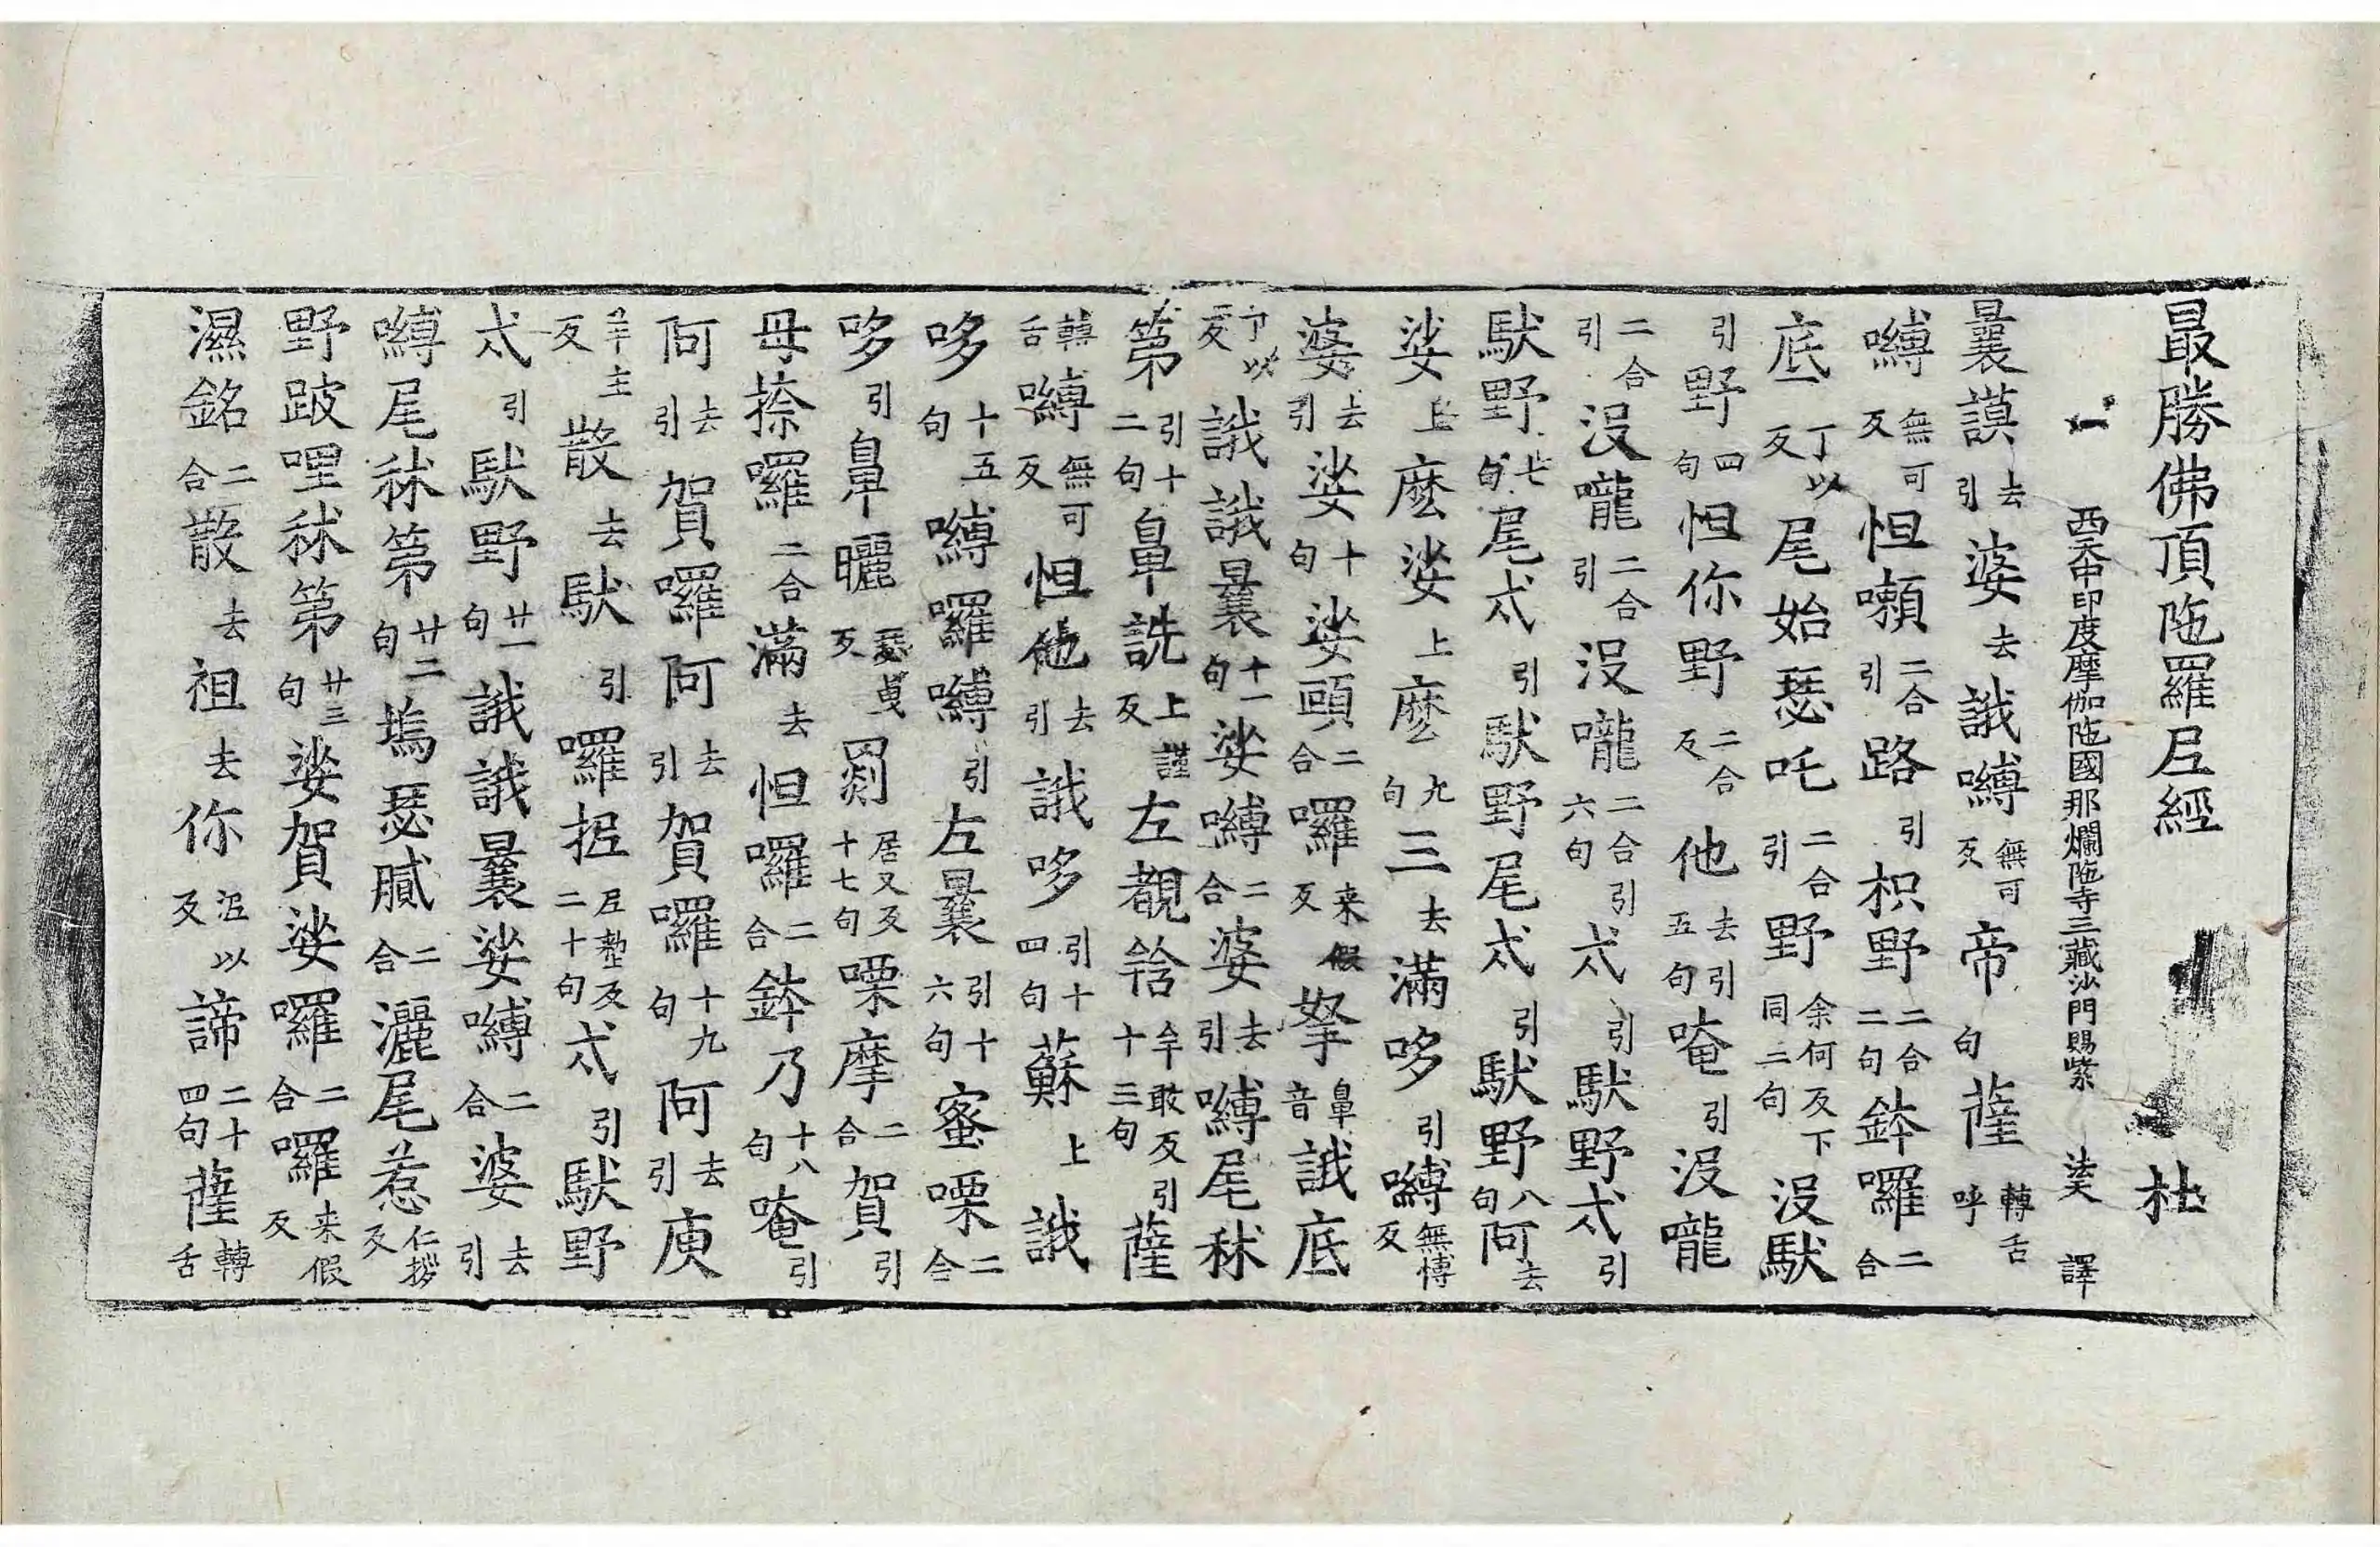 最勝佛頂陁羅尼經 杜
西天中印度摩伽陁國那爛陁寺三藏沙門賜紫 法天 譯
曩謨去引婆去誐嚩無可反帝句薩轉舌呼
嚩無可反怛囕二合引路引枳野二合二句鉢囉二合
底丁以反尾始瑟吒二合引野余何反下同二句没馱
引野四句怛你野二合反他去引五句唵引没嚨
二合引没嚨二合引没嚨二合引六句忒引馱野忒引
馱野七句尾忒引馱野尾忒引馱野八句阿去
娑上麽娑上麽九句三去滿哆引嚩無博反
婆去引娑十句娑頗二合囉来假反拏鼻音誐底
丁以反誐誐曩十一句娑嚩二合婆去引嚩尾秫
第引十二句鼻詵上謹反左覩唅牟敢反引十三句薩
轉舌嚩無可反怛他去引誐哆引十四句蘇上誐
哆十五句嚩囉嚩引左曩引十六句蜜㗚二合
哆引鼻曬反罽居又反十七句㗚摩二合賀引
母捺囉二合滿去怛囉二合鉢乃十八句唵引
阿去引賀囉阿去引賀囉十九句阿去引庾
反散去馱引囉抳尼整反二十句忒引馱野
忒引馱野廿一句誐誐曩娑嚩二合婆去引
嚩尾秫第廿二句塢瑟膩二合灑尾惹仁拶反
野跛哩秫第廿三句娑賀娑囉二合囉来假反
濕銘二合散去祖去你泥以反諦二十四句薩轉舌